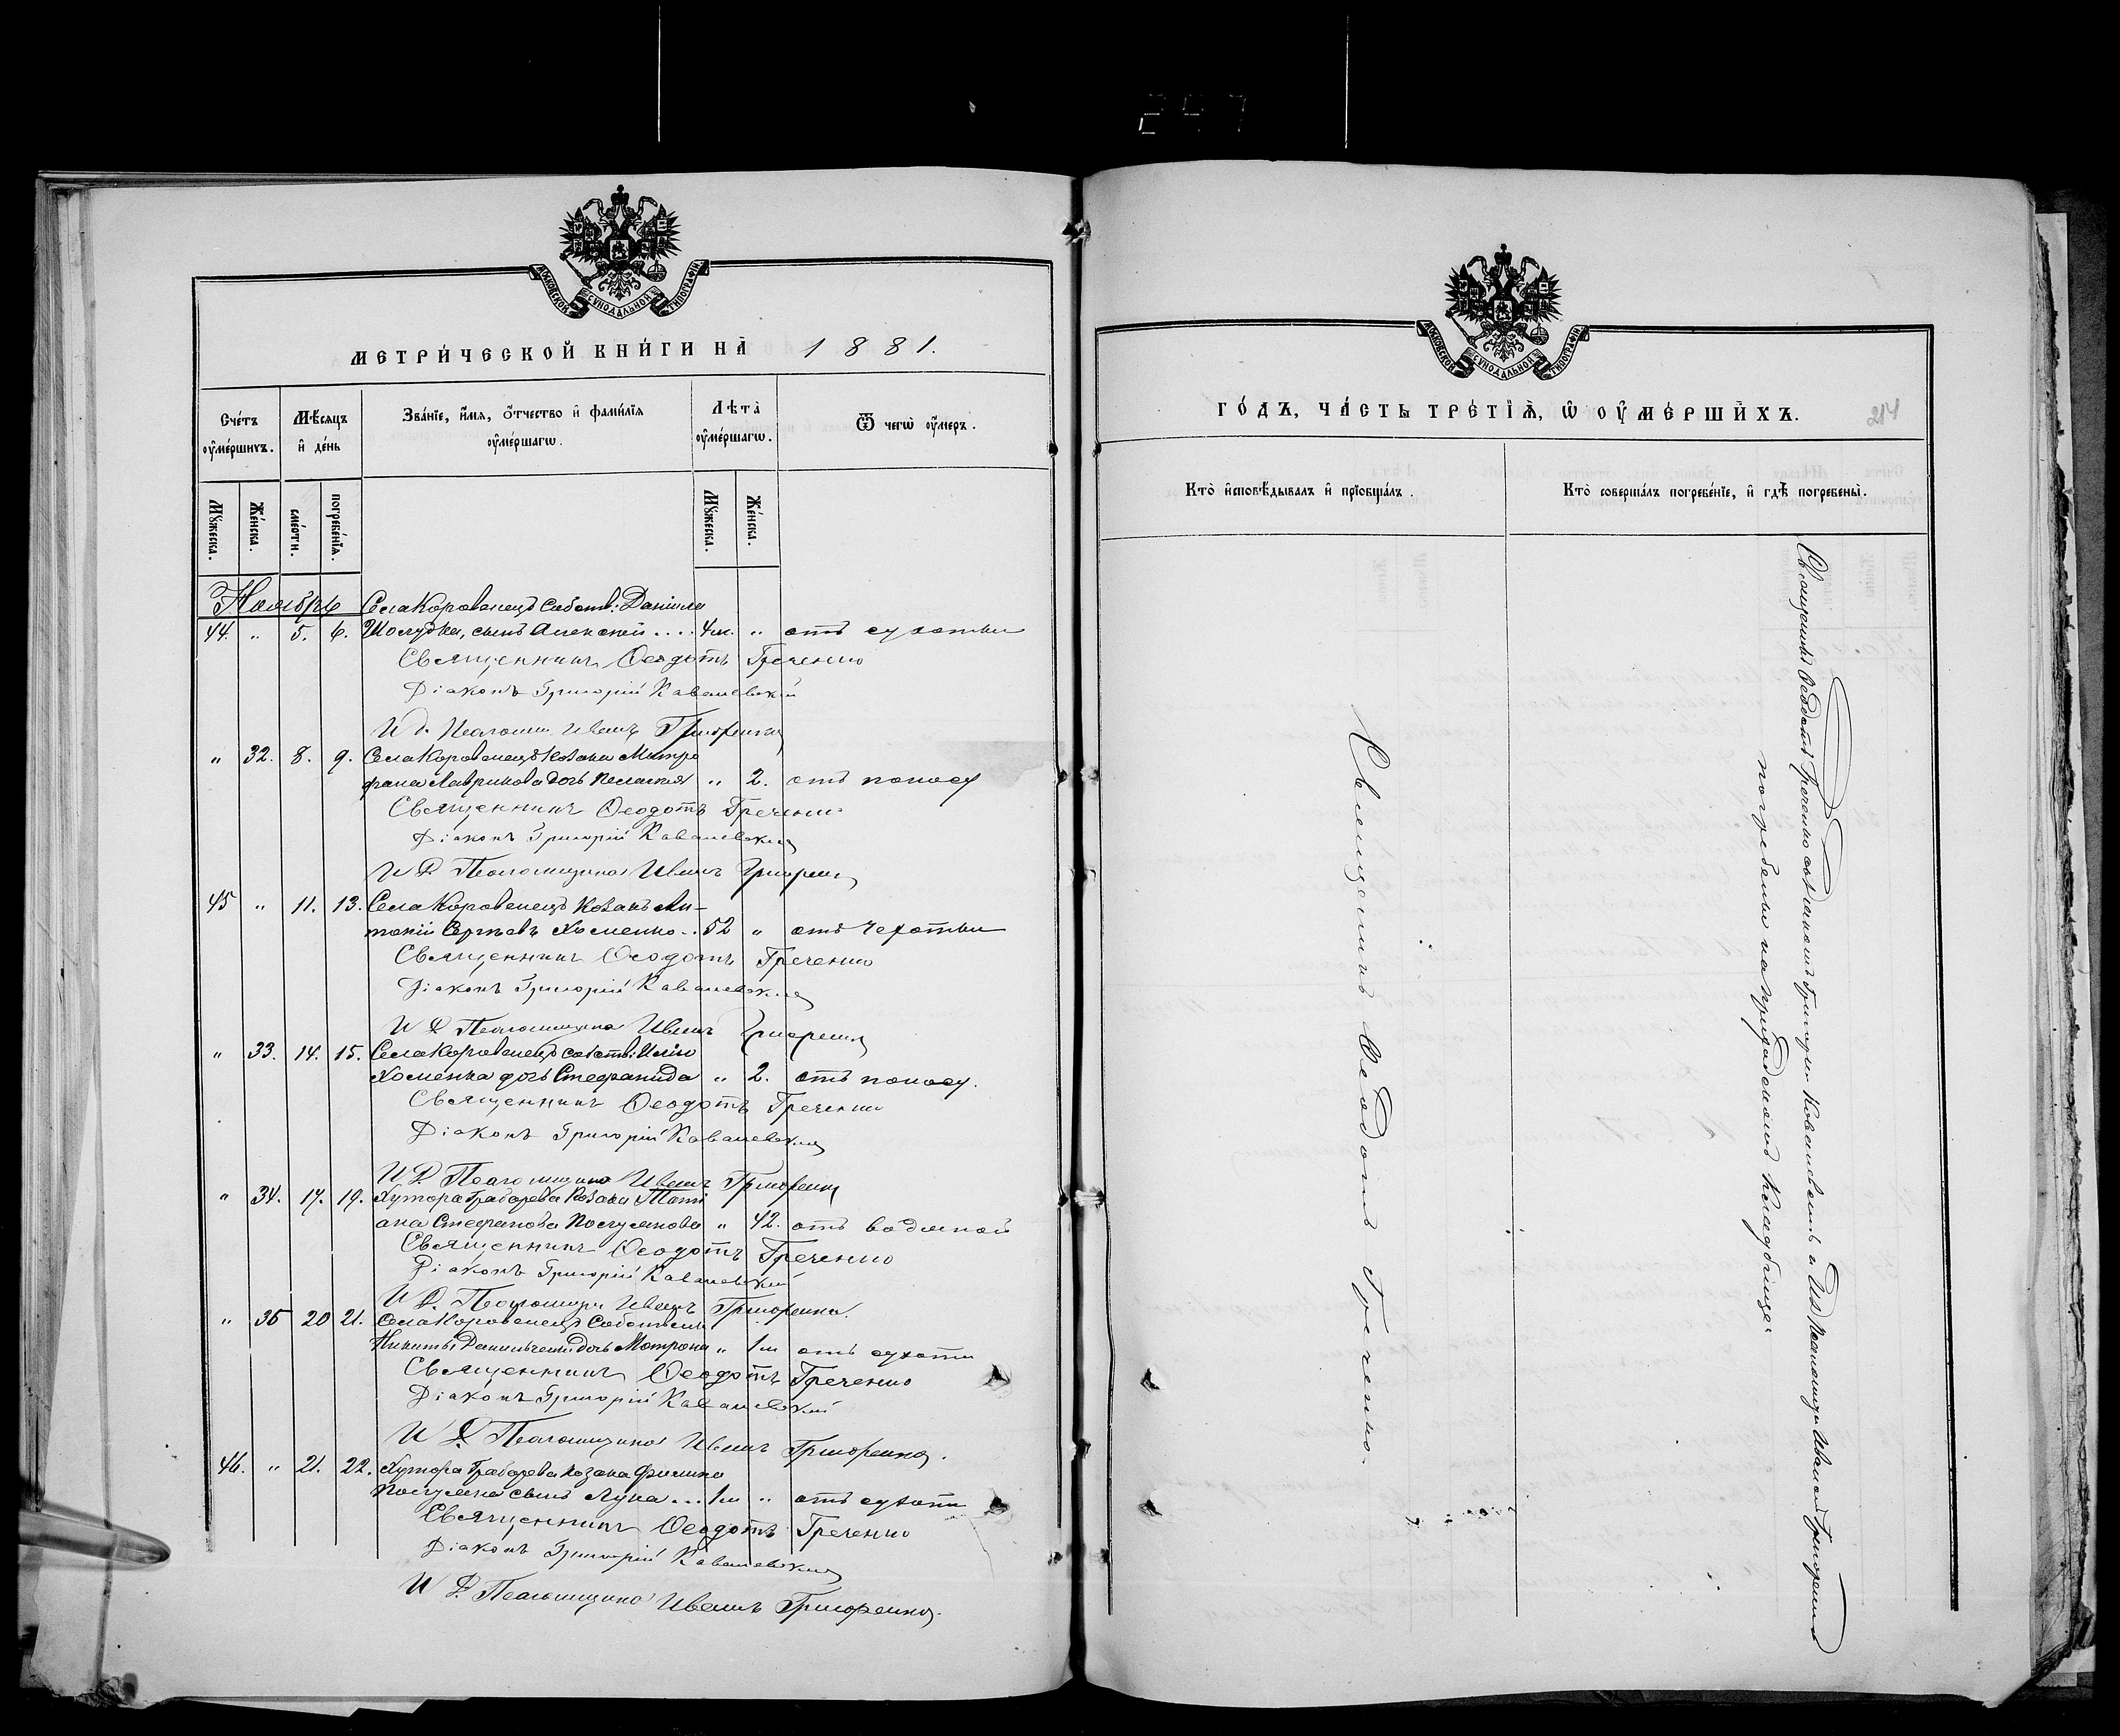 247
МОСКОВСКОЙ СѴНОДАЛЬНОЙ ТИПОГРАФІИ
МЕТРИ́ЧЕСКОЙ КНИ́ГИ НА̀ 1881.
Сче́тъ оу҆ме́ршихъ.
Мѣ́сяцъ и҆ де́нь
Зва́нїе, и҆́мѧ, ѻ҆́тчество и҆ фами́лїѧ оу҆ме́ршагѡ.
Лѣта̀ оу҆ме́ршагѡ.
Ѿ чегѡ̀ оу҆́меръ.
Мꙋ́жеска.
Же́нска.
сме́рти.
погребе́нїѧ.
Мꙋ́жеска.
Же́нска.
Ноябрь Села Коровинецъ собств: Даніила
44. " 5. 6. сынъ Алексѣй .... 4 м. " отъ сухотки
Священникъ Ѳеодотъ Греченко
Діаконъ Григорій Ковалевскій
И д. Псаломщ Иванъ Григоренко
" 32. 8. 9. Села Коровинецъ козака Митро
фана Лаврикова дочь Пелагия " 2. отъ поносу
Священникъ Ѳеодотъ Греченко
Діаконъ Григорій Ковалевскій
И Д Псаломщика Иванъ Григорен
45 " 11. 13. Села Коровинецъ козакъ Ан-
тоній Сергѣевъ Хоменко .. 52 " отъ чахотки
Священникъ Ѳеодотъ Греченко
Діаконъ Григорій Ковалевскій
И Д Псаломщика Иванъ Григоренко
" 33. 14. 15. Села Коровинецъ собств: Иліи
Хоменка дочь Стефанида " 2. отъ поносу.
Священникъ Ѳеодотъ Греченко
Діаконъ Григорій Ковалевскій
И Д. Псаломщика Иванъ Григоренко
" 34. 17. 19. Хутора Грабарева козачка Тати
ана Стефанова " 42. отъ водяной
Священникъ Ѳеодотъ Греченко
Діаконъ Григорій Ковалевскій
И Д. Псаломщи Иванъ Григоренко.
" 35 20 21. Села Коровинецъ Собствен
Никиты дочь Мотрона " 1 м отъ сухоти
Священникъ Ѳеодотъ Греченко
Діаконъ Григорій Ковалевскій
И Д. Псаломщика Иванъ Григоренко.
46. " 21. 22. Хутора Грабарева козака Филипа
сынъ Лука ... 1 м " отъ сухоти
Священникъ Ѳеодотъ Греченко
Діаконъ Григорій Ковалевскій
И Д. Псаломщика Иванъ Григоренко.
МОСКОВСКОЙ СѴНОДАЛЬНОЙ ТИПОГРАФІИ
ГО́ДЪ, ЧА́СТЬ ТРЕ́ТЇѦ, Ѡ҆ ОУ҆МЕ́РШИХЪ.
214
Кто̀ и҆сповѣ́дывалъ и҆ прїѡбща́лъ.
Кто̀ соверша́лъ погребе́нїе, и҆ гдѣ̀ погребены̀.
Священникъ Ѳеодотъ Греченко.
Священникъ Ѳеодотъ Греченко съ діакономъ Григоріемъ Ковалевскимъ и И Д Псаломщ Иваномъ Григоренкомъ
погребены на приходскомъ кладбищѣ.